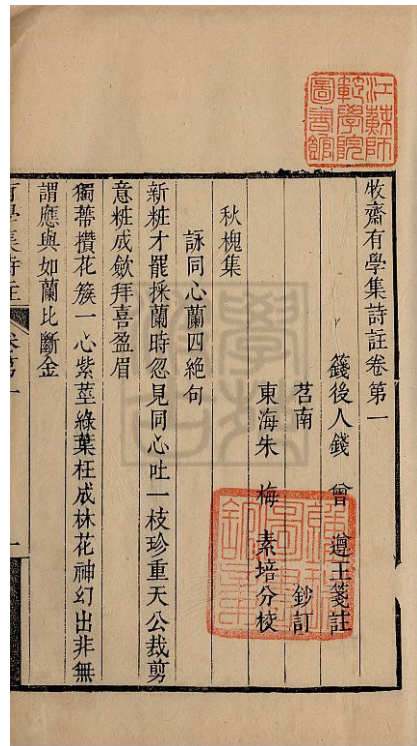 牧齋有學集詩註卷第一
籛後人錢　曾　遵王箋註
苕南　　　　　鈔訂
東海朱　梅　素培分校
秋槐集
詠同心蘭四絶句
新粧才罷採蘭時忽見同心吐一枝珍重天公裁剪
意粧成斂拜喜盈眉
獨蒂攢花簇一心紫莖綠葉枉成林花神幻出非無
謂應與如蘭比斷金
江蘇師
範學院
圖書館